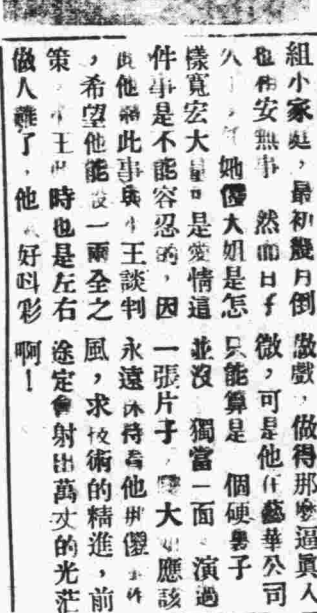 組小家庭，最初幾月倒
也相安無事 然而日子
久 她儍大姐是怎
樣寬宏大量可是愛情這
件事是不能容忍的，因
此他將此事與小王談判
，希望他能設一兩全之
策 小王此時也是左右
做人難了，他 好
做戲，做得那麼逼真人
微，可是他在藝華公司
只能算是 個硬裏子
並沒 獨當一面 演過
一張片子，大 應該
永遠保持着他那儍 作
風，求技術的精進，前
途定會射出萬丈的光茫
啊！